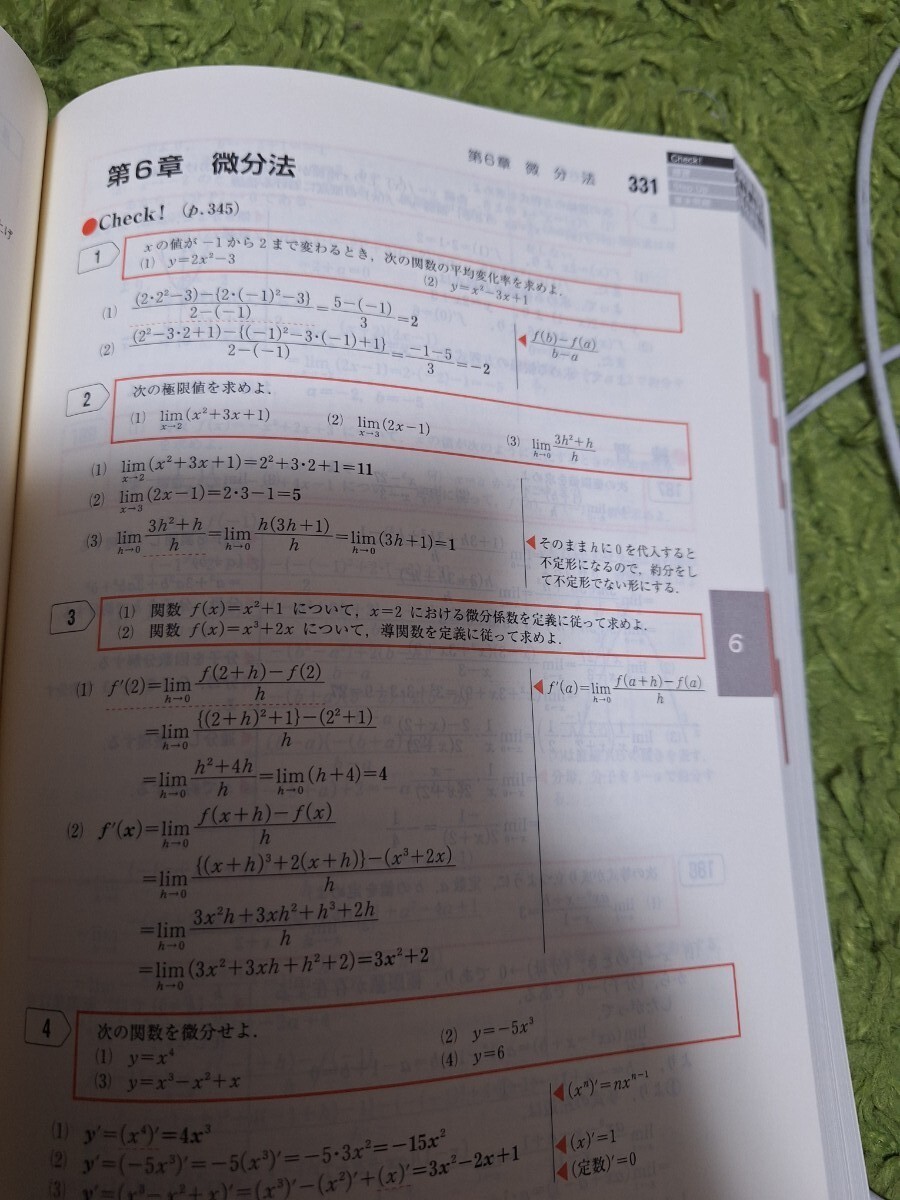 第6章 微分法
第6章 微分法 331
Check!
●Check! (p.345)
1 xの値が−1から2まで変わるとき,次の関数の平均変化率を求めよ.
(1) y=2x²−3 (2) y=x²−3x+1
(1) {(2·2²−3)−{2·(−1)²−3}}/{2−(−1)}={5−(−1)}/3=2
◀ {f(b)−f(a)}/{b−a}
(2) {(2²−3·2+1)−{(−1)²−3·(−1)+1}}/{2−(−1)}={−1−5}/3=−2
2 次の極限値を求めよ.
(1) lim_{x→2}(x²+3x+1) (2) lim_{x→3}(2x−1) (3) lim_{h→0}(3h²+h)/h
(1) lim_{x→2}(x²+3x+1)=2²+3·2+1=11
(2) lim_{x→3}(2x−1)=2·3−1=5
(3) lim_{h→0}(3h²+h)/h=lim_{h→0}h(3h+1)/h=lim_{h→0}(3h+1)=1
◀そのままhに0を代入すると
不定形になるので,約分をし
て不定形でない形にする.
3 (1) 関数 f(x)=x²+1 について,x=2 における微分係数を定義に従って求めよ.
(2) 関数 f(x)=x³+2x について,導関数を定義に従って求めよ.
(1) f′(2)=lim_{h→0}{f(2+h)−f(2)}/h
◀ f′(a)=lim_{h→0}{f(a+h)−f(a)}/h
=lim_{h→0}[{(2+h)²+1}−(2²+1)]/h
=lim_{h→0}(h²+4h)/h=lim_{h→0}(h+4)=4
(2) f′(x)=lim_{h→0}{f(x+h)−f(x)}/h
=lim_{h→0}[{(x+h)³+2(x+h)}−(x³+2x)]/h
=lim_{h→0}(3x²h+3xh²+h³+2h)/h
=lim_{h→0}(3x²+3xh+h²+2)=3x²+2
6
4 次の関数を微分せよ.
(1) y=x⁴ (2) y=−5x³
(3) y=x³−x²+x (4) y=6
◀(xⁿ)′=nxⁿ⁻¹
(1) y′=(x⁴)′=4x³
(2) y′=(−5x³)′=−5(x³)′=−5·3x²=−15x²
◀(x)′=1
(3) y′=(x³−x²+x)′=(x³)′−(x²)′+(x)′=3x²−2x+1
◀(定数)′=0